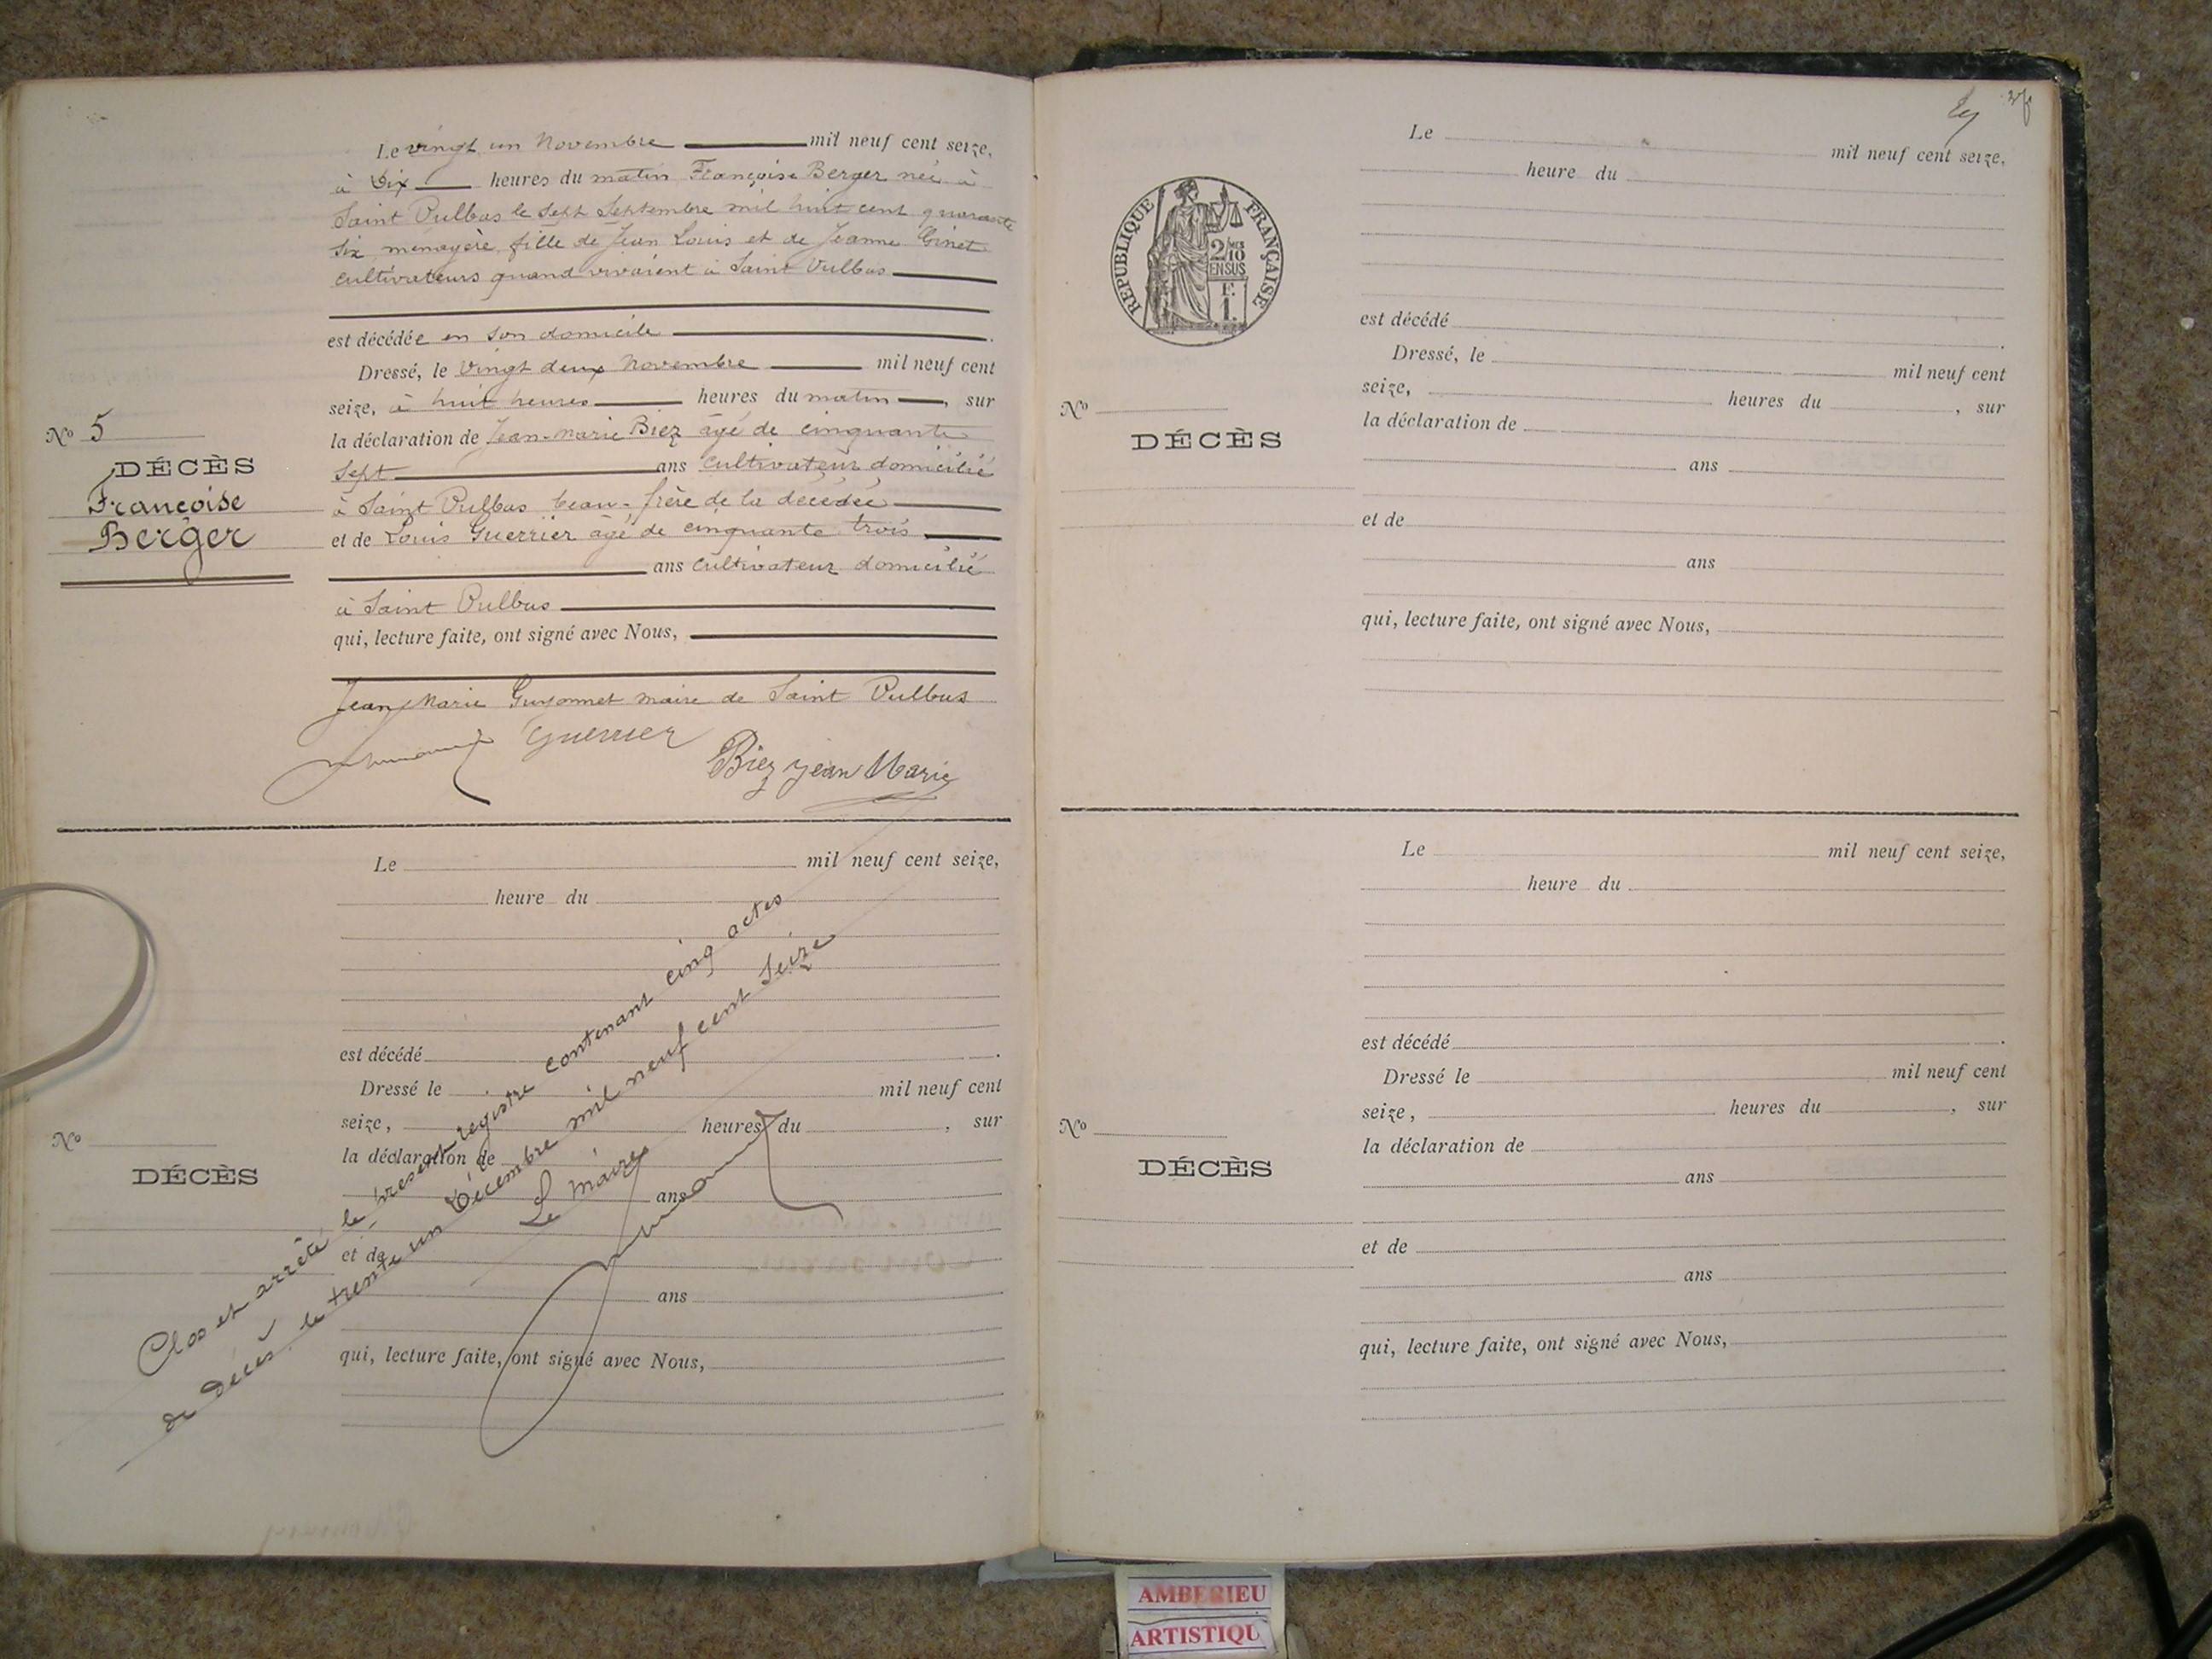 Le vingt un Novembre mil neuf cent seize,
à Dix heures du matin Françoise Berger née à
Saint Vulbas le Sept Septembre mil huit cent quarante
six ménagère, fille de Jean Louis et de Jeanne Ginet
cultivateurs quand vivaient à Saint Vulbas
est décédée en son domicile .
Dressé, le vingt deux Novembre mil neuf cent
seize, à huit heures heures du matin , sur
la déclaration de Jean-Marie Biez âgé de cinquante
sept ans cultivateur domicilié
à Saint Vulbas beau-frère de la décédée
et de Louis Guerrier âgé de cinquante trois
ans cultivateur domicilié
à Saint Vulbas
qui, lecture faite, ont signé avec Nous,
Jean Marie Guyonnet maire de Saint Vulbas
Guerrier
Biez jean Marie
No 5
DÉCÈS
Françoise
Berger
Le mil neuf cent seize,
heure du
est décédé .
Dressé le mil neuf cent
seize, heures du , sur
la déclaration de
ans
et de
ans
qui, lecture faite, ont signé avec Nous,
No
DÉCÈS
Clos et arrêté le présent registre contenant cinq actes
de Décès, le trente un Décembre mil neuf cent Seize
Le Maire
27
RÉPUBLIQUE FRANÇAISE
2/10
EN SUS
F.
1.
Le mil neuf cent seize,
heure du
est décédé .
Dressé, le mil neuf cent
seize, heures du , sur
la déclaration de
ans
et de
ans
qui, lecture faite, ont signé avec Nous,
No
DÉCÈS
Le mil neuf cent seize,
heure du
est décédé .
Dressé le mil neuf cent
seize, heures du , sur
la déclaration de
ans
et de
ans
qui, lecture faite, ont signé avec Nous,
No
DÉCÈS
AMBERIEU
ARTISTIQU